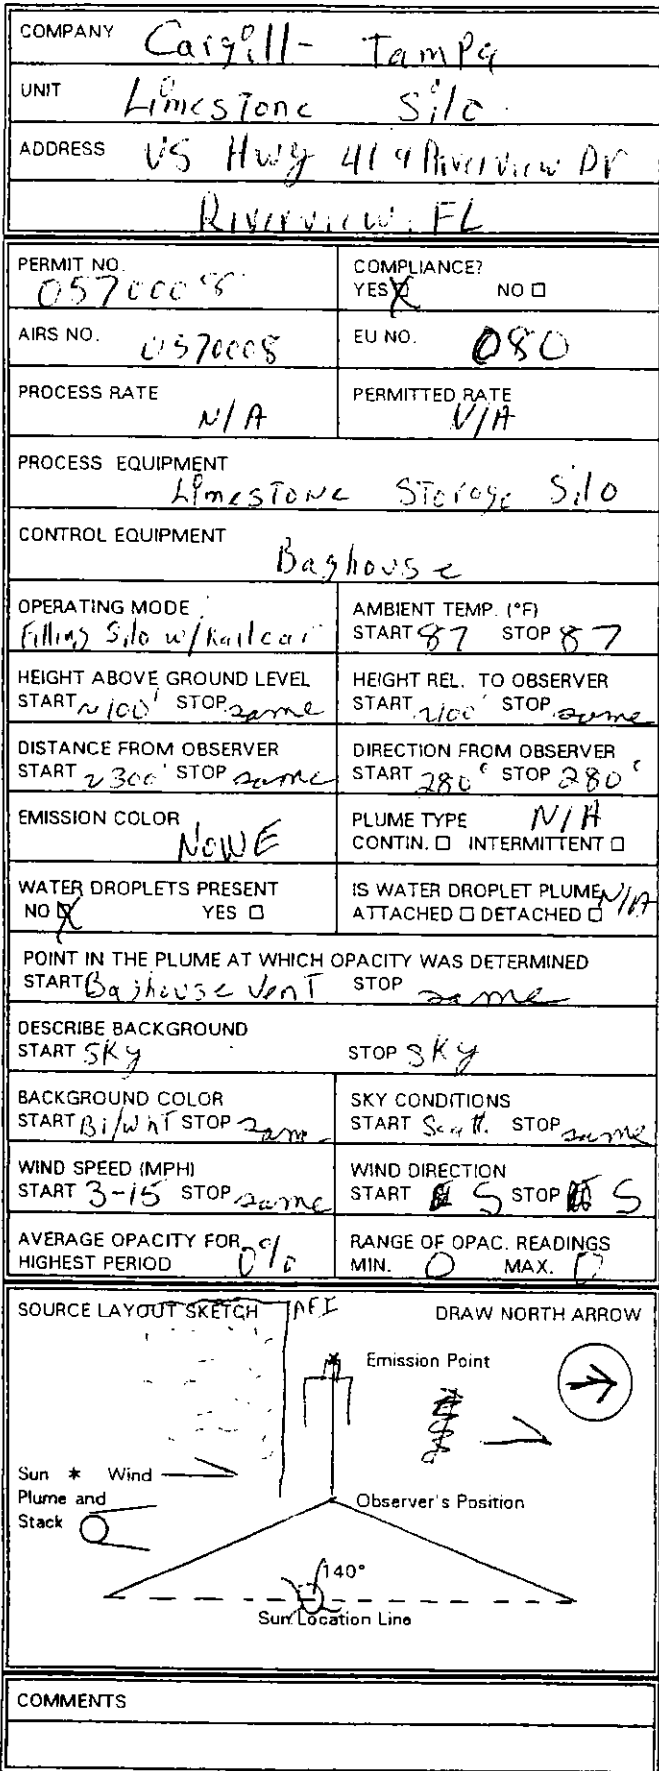 COMPANY Cargill- Tampa
UNIT Limestone Silo
ADDRESS US Hwy 41 & Riverview Dr
Riverview, FL
PERMIT NO. 0570008
COMPLIANCE? YES X NO
AIRS NO. 0570008
EU NO. 080
PROCESS RATE N/A
PERMITTED RATE N/A
PROCESS EQUIPMENT Limestone Storage Silo
CONTROL EQUIPMENT Baghouse
OPERATING MODE Filling Silo w/Railcar
AMBIENT TEMP. (°F) START 87 STOP 87
HEIGHT ABOVE GROUND LEVEL START ~100' STOP same
HEIGHT REL. TO OBSERVER START ~100' STOP same
DISTANCE FROM OBSERVER START ~300' STOP same
DIRECTION FROM OBSERVER START 280° STOP 280°
EMISSION COLOR NONE
PLUME TYPE N/A CONTIN. INTERMITTENT
WATER DROPLETS PRESENT NO X YES
IS WATER DROPLET PLUME N/A ATTACHED DETACHED
POINT IN THE PLUME AT WHICH OPACITY WAS DETERMINED
START Baghouse Vent STOP same
DESCRIBE BACKGROUND
START Sky STOP Sky
BACKGROUND COLOR START Bl/WhT STOP same
SKY CONDITIONS START Scatt. STOP same
WIND SPEED (MPH) START 3-15 STOP same
WIND DIRECTION START S STOP S
AVERAGE OPACITY FOR HIGHEST PERIOD 0%
RANGE OF OPAC. READINGS MIN. 0 MAX. 0
SOURCE LAYOUT SKETCH AFI DRAW NORTH ARROW
Emission Point
Sun * Wind
Plume and
Stack
Observer's Position
140°
Sun Location Line
COMMENTS